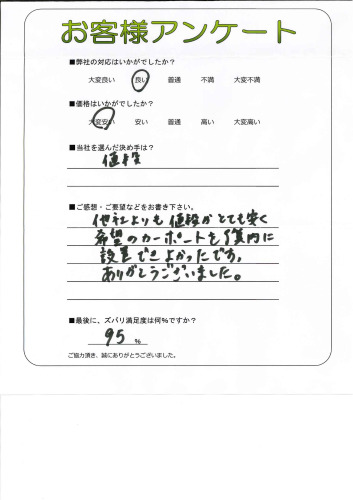 お客様アンケート
■弊社の対応はいかがでしたか?
大変良い 良い 普通 不満 大変不満
■価格はいかがでしたか?
大変安い 安い 普通 高い 大変高い
■当社を選んだ決め手は?
値段
■ご感想・ご要望などをお書き下さい。
他社よりも値段がとても安く
希望のカーポートを予算内に
設置できよかったです。
ありがとうございました。
■最後に、ズバリ満足度は何%ですか?
95 %
ご協力頂き、誠にありがとうございました。